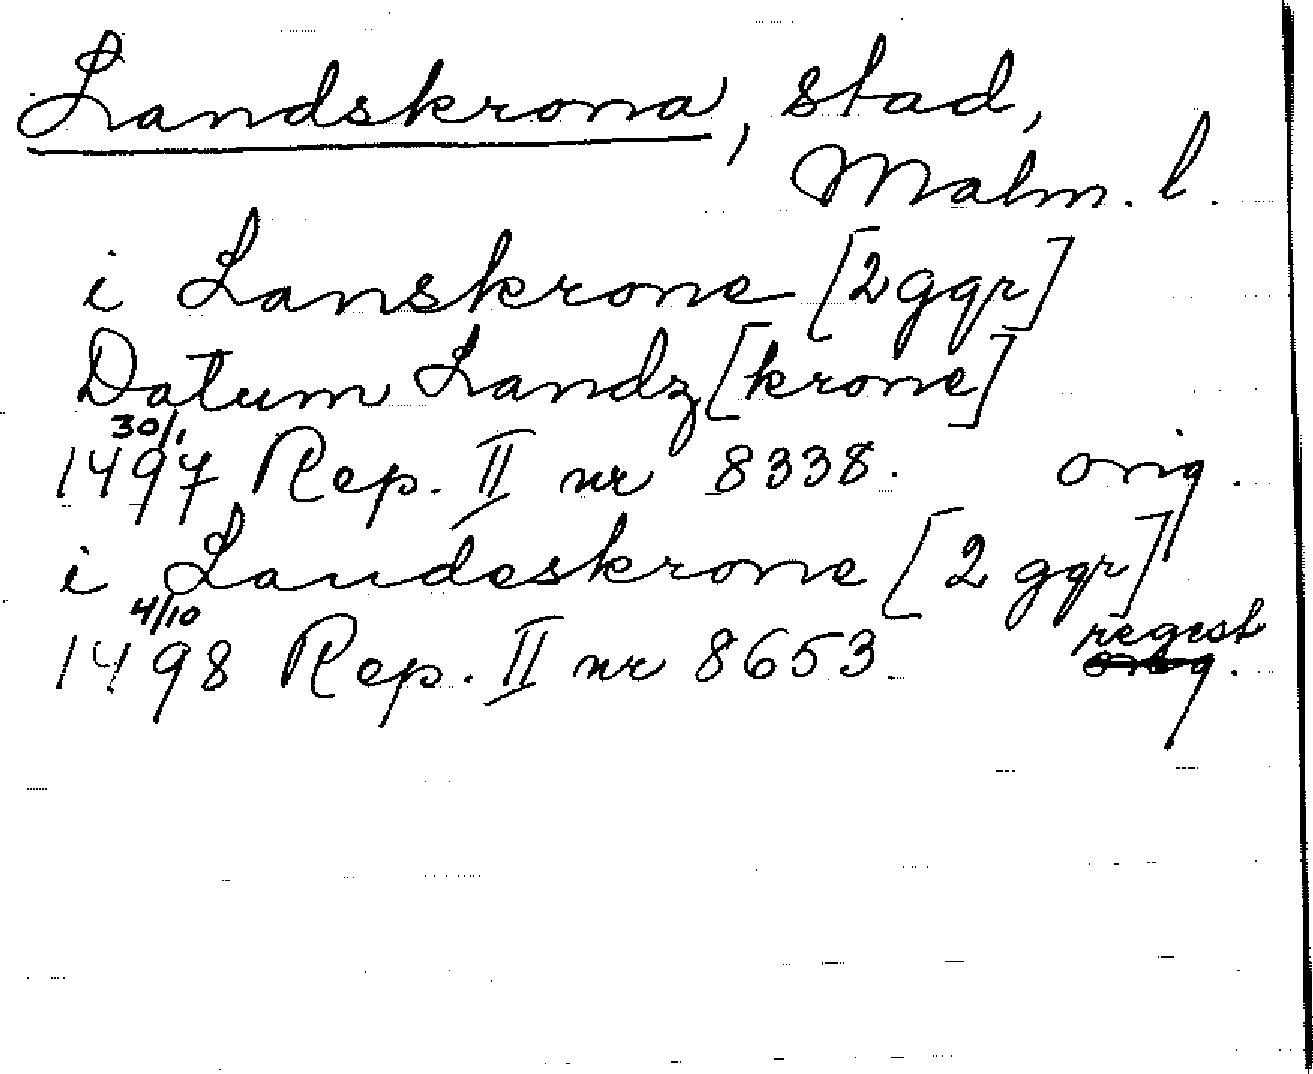 Landskrona, stad,
Malm. l.
i Lanskrone [2 ggr]
Datum Landz[krone]
30/1
1497 Rep. II nr 8338. orig.
i Landeskrone [2 ggr]
4/10
1498 Rep. II nr 8653. regest
orig.